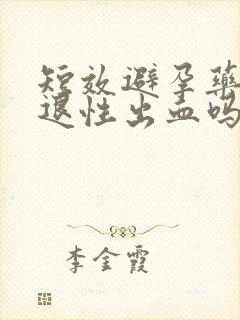 短效避孕药
退性出血吗
李金霞